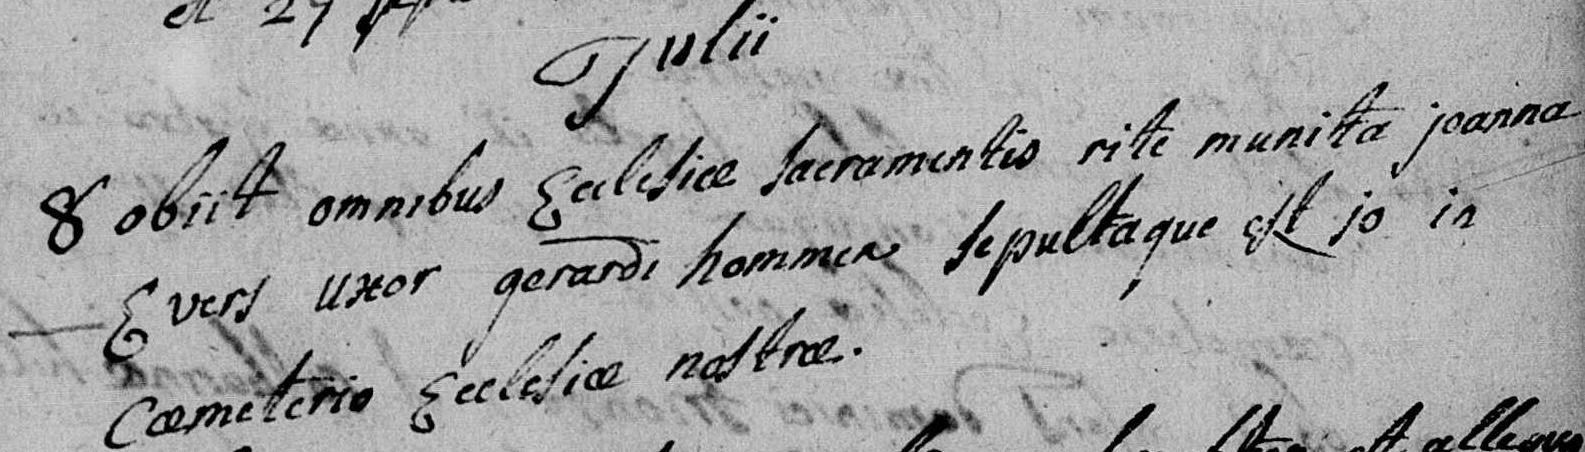 et 27
Julii
8 obiit omnibus Ecclesiæ sacramentis rite munita joanna
Evers uxor gerardi hommen sepultaque est jo in
Cæmeterio Ecclesiæ nostræ.